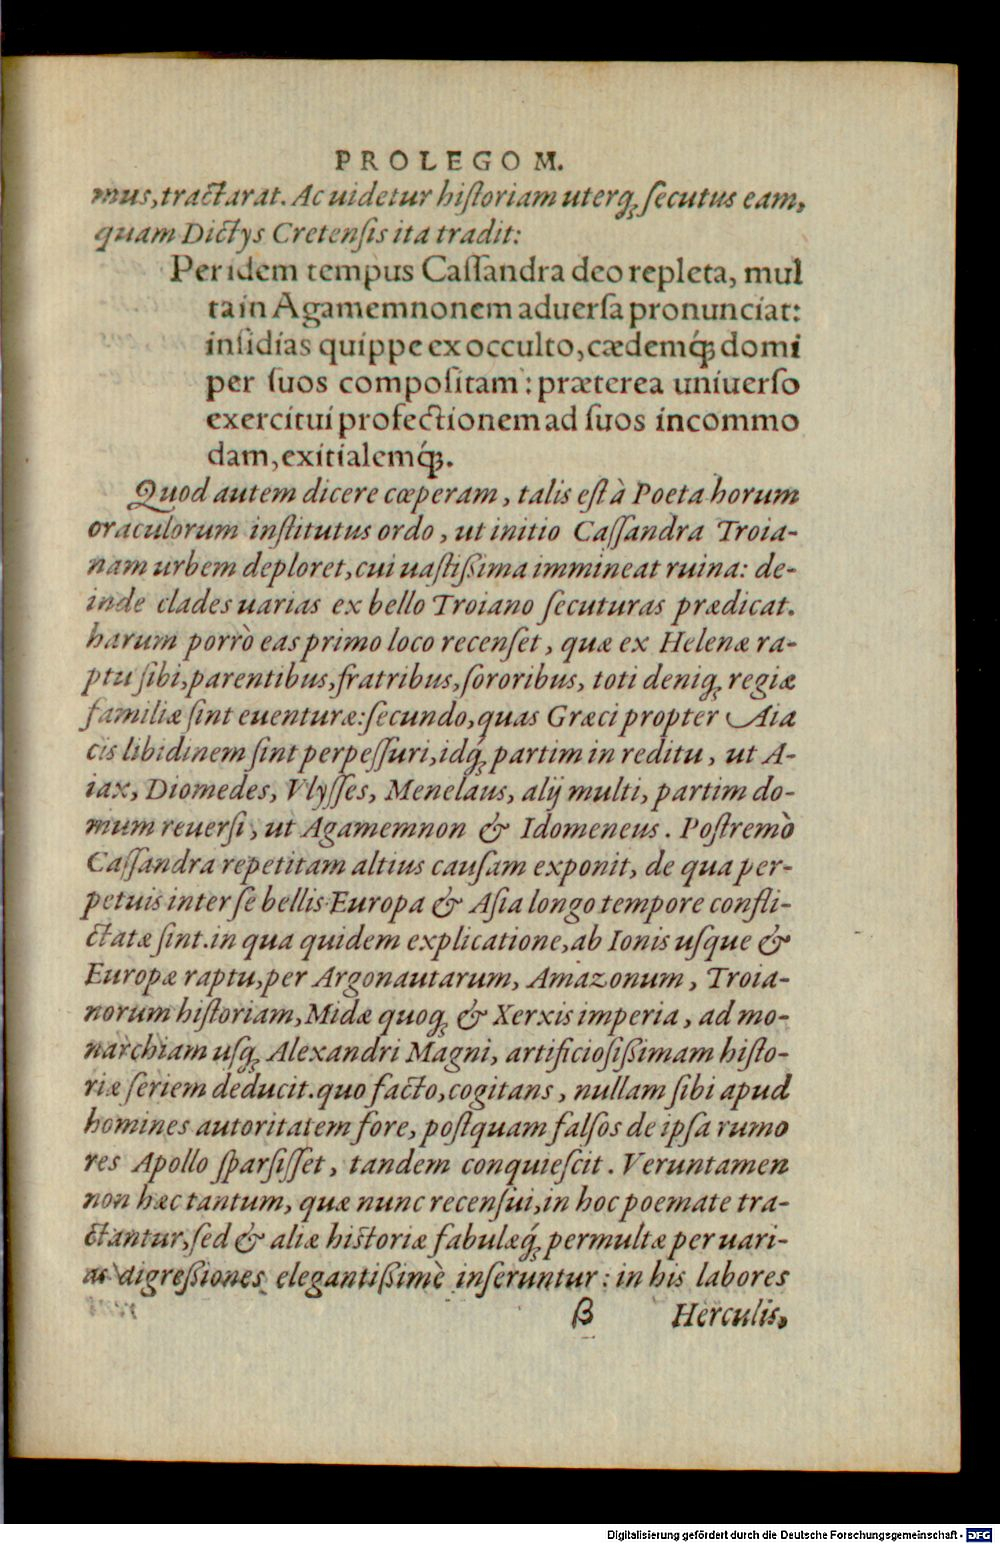 PROLEGOM.
mus, tractarat. Ac uidetur hiſtoriam uterq; ſecutus eam,
quam Dictys Cretenſis ita tradit:
Per idem tempus Caſſandra deo repleta, mul
ta in Agamemnonem aduerſa pronunciat:
inſidias quippe ex occulto, cædemq́; domi
per ſuos compoſitam: præterea uniuerſo
exercitui profectionem ad ſuos incommo
dam, exitialemq́;.
Quod autem dicere cœperam, talis eſt à Poeta horum
oraculorum inſtitutus ordo, ut initio Caſſandra Troia-
nam urbem deploret, cui uaſtißima immineat ruina: de-
inde clades uarias ex bello Troiano ſecuturas prædicat.
harum porrò eas primo loco recenſet, quæ ex Helenæ ra-
ptu ſibi, parentibus, fratribus, ſororibus, toti deniq; regiæ
familiæ ſint euenturæ: ſecundo, quas Græci propter Aia
cis libidinem ſint perpeſſuri, idq́; partim in reditu, ut A-
iax, Diomedes, Vlyſſes, Menelaus, alij multi, partim do-
mum reuerſi, ut Agamemnon & Idomeneus. Poſtremò
Caſſandra repetitam altius cauſam exponit, de qua per-
petuis inter ſe bellis Europa & Aſia longo tempore confli-
ctatæ ſint. in qua quidem explicatione, ab Ionis uſque &
Europæ raptu, per Argonautarum, Amazonum, Troia-
norum hiſtoriam, Midæ quoq; & Xerxis imperia, ad mo-
narchiam uſq; Alexandri Magni, artificioſißimam hiſto-
riæ ſeriem deducit. quo facto, cogitans, nullam ſibi apud
homines autoritatem fore, poſtquam falſos de ipſa rumo
res Apollo ſparſiſſet, tandem conquieſcit. Veruntamen
non hæc tantum, quæ nunc recenſui, in hoc poemate tra-
ctantur, ſed & aliæ historiæ fabulæq́; permultæ per uari-
as digreßiones elegantißimè inſeruntur: in his labores
β Herculis,
Digitalisierung gefördert durch die Deutsche Forschungsgemeinschaft - DFG